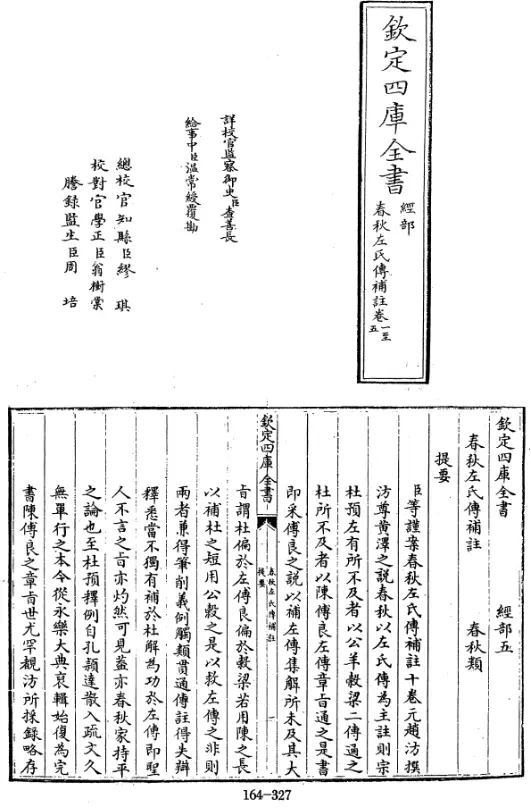 欽定四庫全書
經部
春秋左氏傳補註卷一至五
詳校官監察御史臣査善長
給事中臣溫常綬覆勘
總校官知縣臣繆琪
校對官學正臣翁樹棠
謄錄監生臣周培
欽定四庫全書 經部五
春秋左氏傳補註 春秋類
提要
臣等謹案春秋左氏傳補註十卷元趙汸撰
汸尊黃澤之說春秋以左氏傳為主註則宗
杜預左有所不及者以公羊穀梁二傳通之
杜所不及者以陳傅良左傳章旨通之是書
即采傅良之說以補左傳集解所未及其大
欽定四庫全書
春秋左氏傳補註
提要
㫖謂杜偏於左傅良偏於穀梁若用陳之長
以補杜之短用公穀之是以救左傳之非則
兩者兼得筆削義例觸類貫通傳註得失辨
釋悉當不獨有補於杜解為功於左傳即聖
人不言之㫖亦灼然可見蓋亦春秋家持平
之論也至杜預釋例自孔穎達散入疏文久
無單行之本今從永樂大典裒輯始復為完
書陳傅良之章㫖世尤罕覯汸所採錄略存
164-327